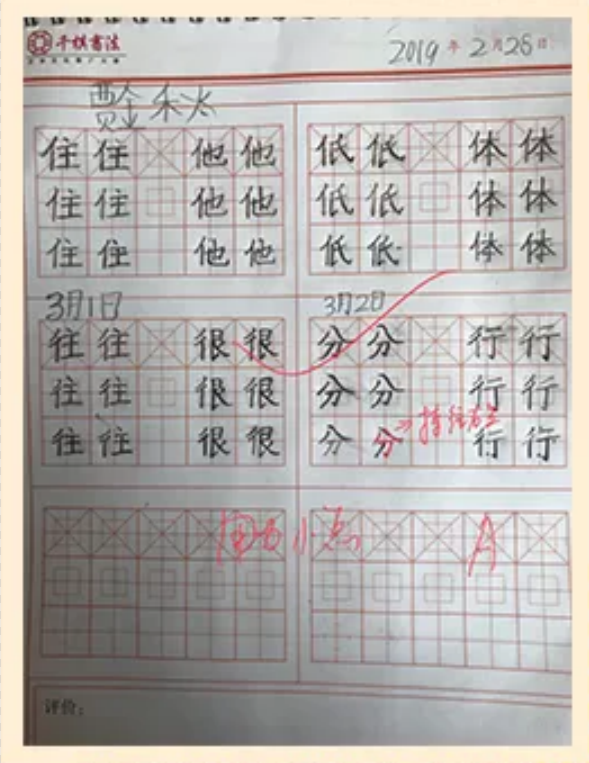 千棋书法
2019年2月26日
住住 他他 低低 体体
住住 他他 低低 体体
住住 他他 低低 体体
3月1日 3月2日
往往 很很 分分 行行
往往 很很 分分 行行
往往 很很 分分 行行
小点 A
评价: